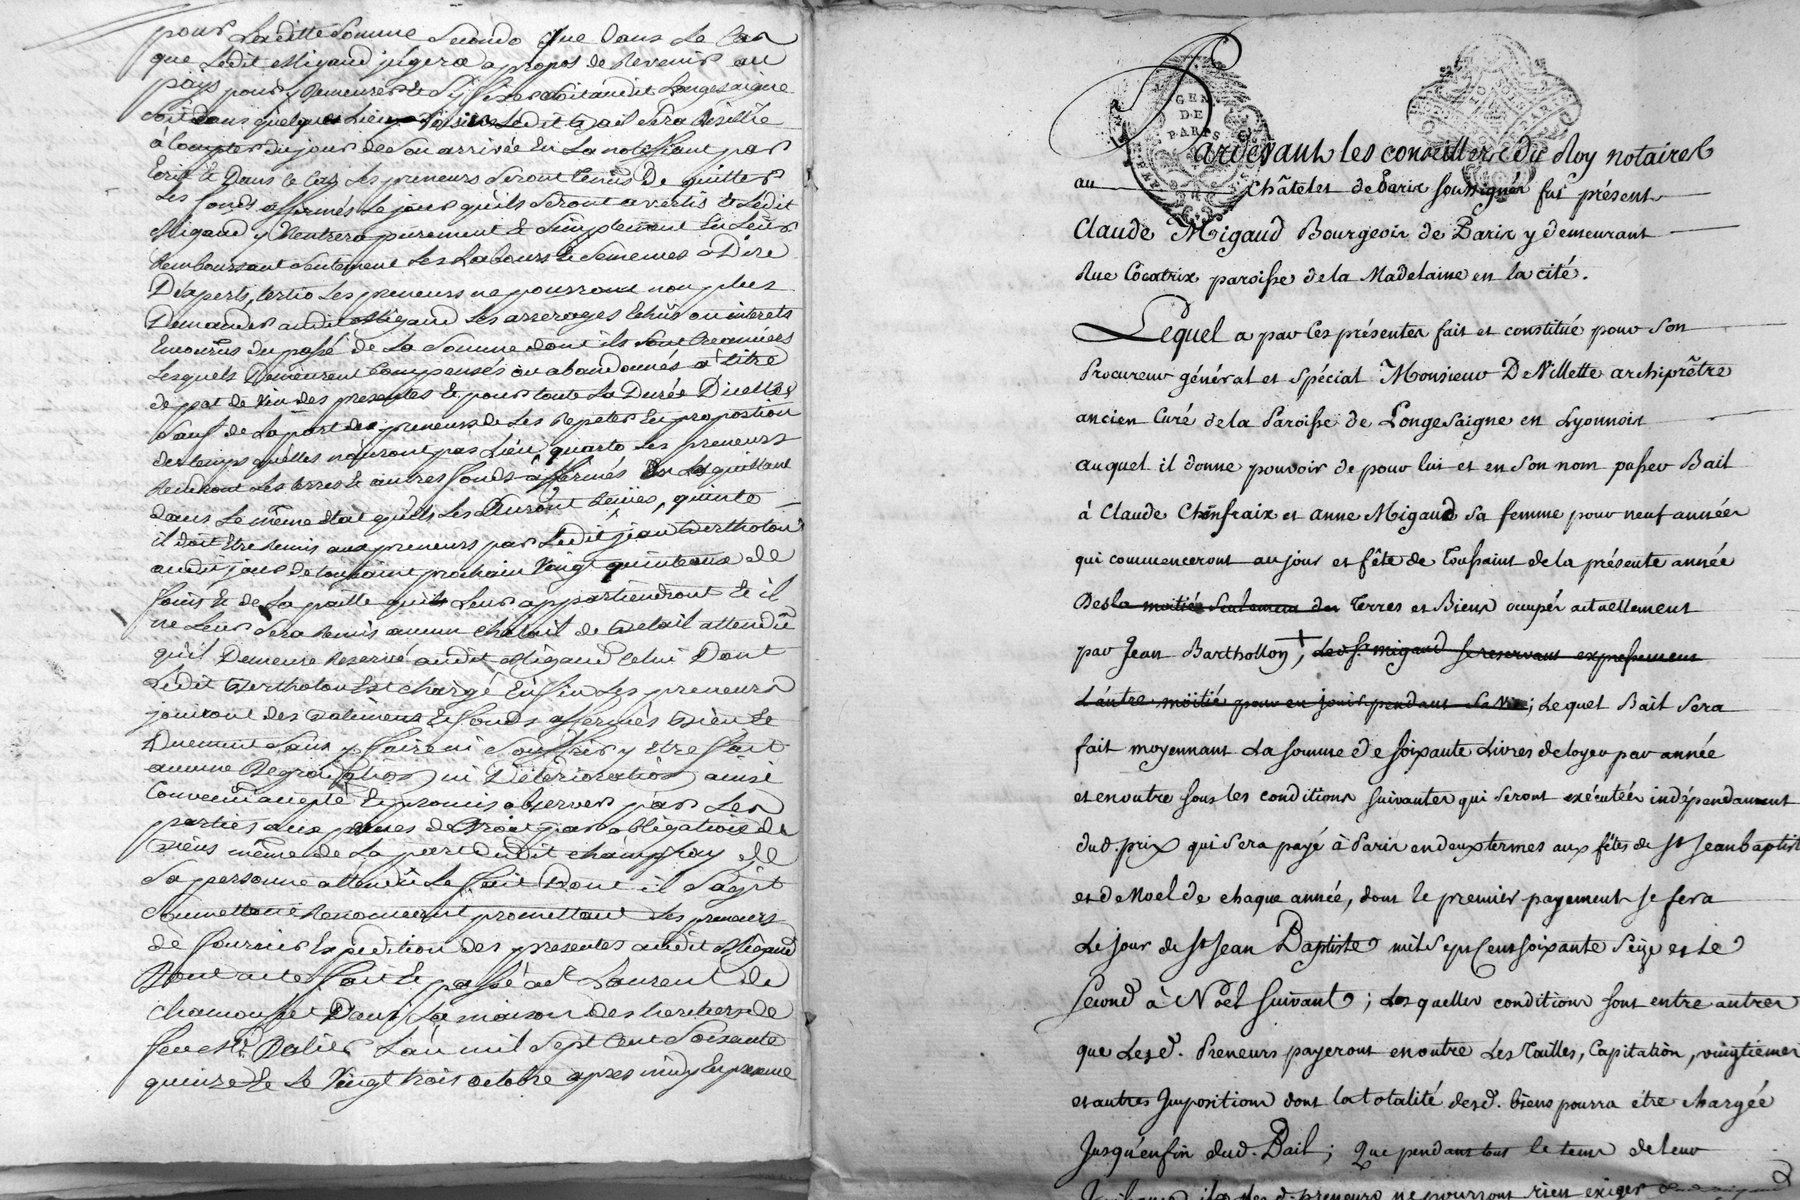 pour laditte somme secondo que dans le cas
que ledit Migaud jugera a propos de Revenir au
païs pour y Demeurer et soit audit Longesaigne
soit dans quelques Lieux ledit Bail sera Résillié
à Compter du jour de son arrivée En La notiffiant par
Ecrit et Dans ce Cas les preneurs seront tenus De quitter
Les fonds affermés le jour qu'ils seront avertis et Ledit
Migaud y Rentrera purement et simplement En Leur
Remboursant seulement Les Labours et semences a Dire
D'experts, tertio les preneurs ne pourront non plus
Demander audit Migaud Les arrerages Echus ou interets
Encourus du passé de La somme dont ils sont Creanciers
Lesquels Demeurent Compensés ou abandonnés a titre
de pot de vin des presentes et pour toute La Durée D'icelles
sauf de La part des preneurs de Les Repeter En proportion
du temps qu'elles n'auront pas Lieu, quarto les preneurs
Rendront Les terres et autres fonds affermés En les quittant
dans Le même état qu'ils Les auront , quinto
il doit Etre Remis aux preneurs par Ledit jean Bertholon
audit jour de toussaint prochain Vingt quinteaux de
foin et de La paille qui Leur appartiendront et il
ne Leur sera Remis aucun Chetail de Betail attendu
qu'il Demeure Reservé audit Migaud Celui Dont
Ledit Bertholon Est chargé Enfin Les preneurs
jouiront des Batimens et fonds affermés Bien et
Duement sans y faire ni souffrir y Etre fait
aucune Degradation ni Détérioration ainsi
Convenu accepté et promis observer par Les
parties aux peines de Droit par obligation de
Biens même de La part dudit Champfray de
sa personne attendu Le fait Dont il s'agit
soumettant Renonceant promettant Les preneurs
de fournir Expedition des presentes audit Migaud
Dont acte fait et passé a St Laurent de
Chamousset Dans La maison des heritiers de
feu Mr. L'an mil sept Cent Soixante
quinze et Le Vingt trois octobre apres midy En presence
GEN
DE
PARIS
Pardevant les conseillers du Roy notaires
au Châtelet de Paris soussignés fut présent
Claude Migaud Bourgeois de Paris y demeurant
Rue Cocatrix paroisse de la Madelaine en la cité.
Lequel a par ces présentes fait et constitué pour son
Procureur général et spécial Monsieur DeVillette archiprêtre
ancien Curé de la Paroisse de Longesaigne en Lyonnois
auquel il donne pouvoir de pour lui et en son nom passer Bail
à Claude Chenfraix et anne Migaud sa femme pour neuf années
qui commenceront au jour et fête de Toussaint de la présente année
Des la moitié seulement des Terres et Biens occupés actuellement
par Jean Barthollon, Led. Sr. migaud se reservant expressement
L'autre moitié pour en jouir pendant sa vie; Lequel Bail sera
fait moyennant La somme de soixante Livres de loyer par année
et en outre sous les conditions suivantes qui seront exécutées indépendament
dud. prix qui sera payé à Paris en deux termes aux fêtes de St Jean baptiste
et de Noel de chaque année, dont le premier payement se fera
Le jour de St Jean Baptiste mil Sept Cent soixante Seize et Le
Second à Noël suivant; Les quelles conditions sont entre autres
que Lesd. Preneurs payeront en outre Les Tailles, Capitation, vingtiemes
et autres Impositions dont la totalité desd. biens pourra être chargée
Jusqu'enfin dud. Bail; Que pendant tout le tems de leur
ils Les d. preneurs ne pourront rien exiger